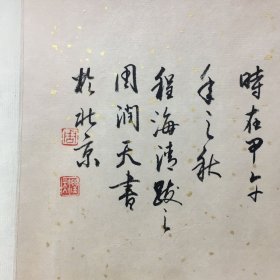 時在甲午
年之秋
程海清跋之
周润天書
於北京